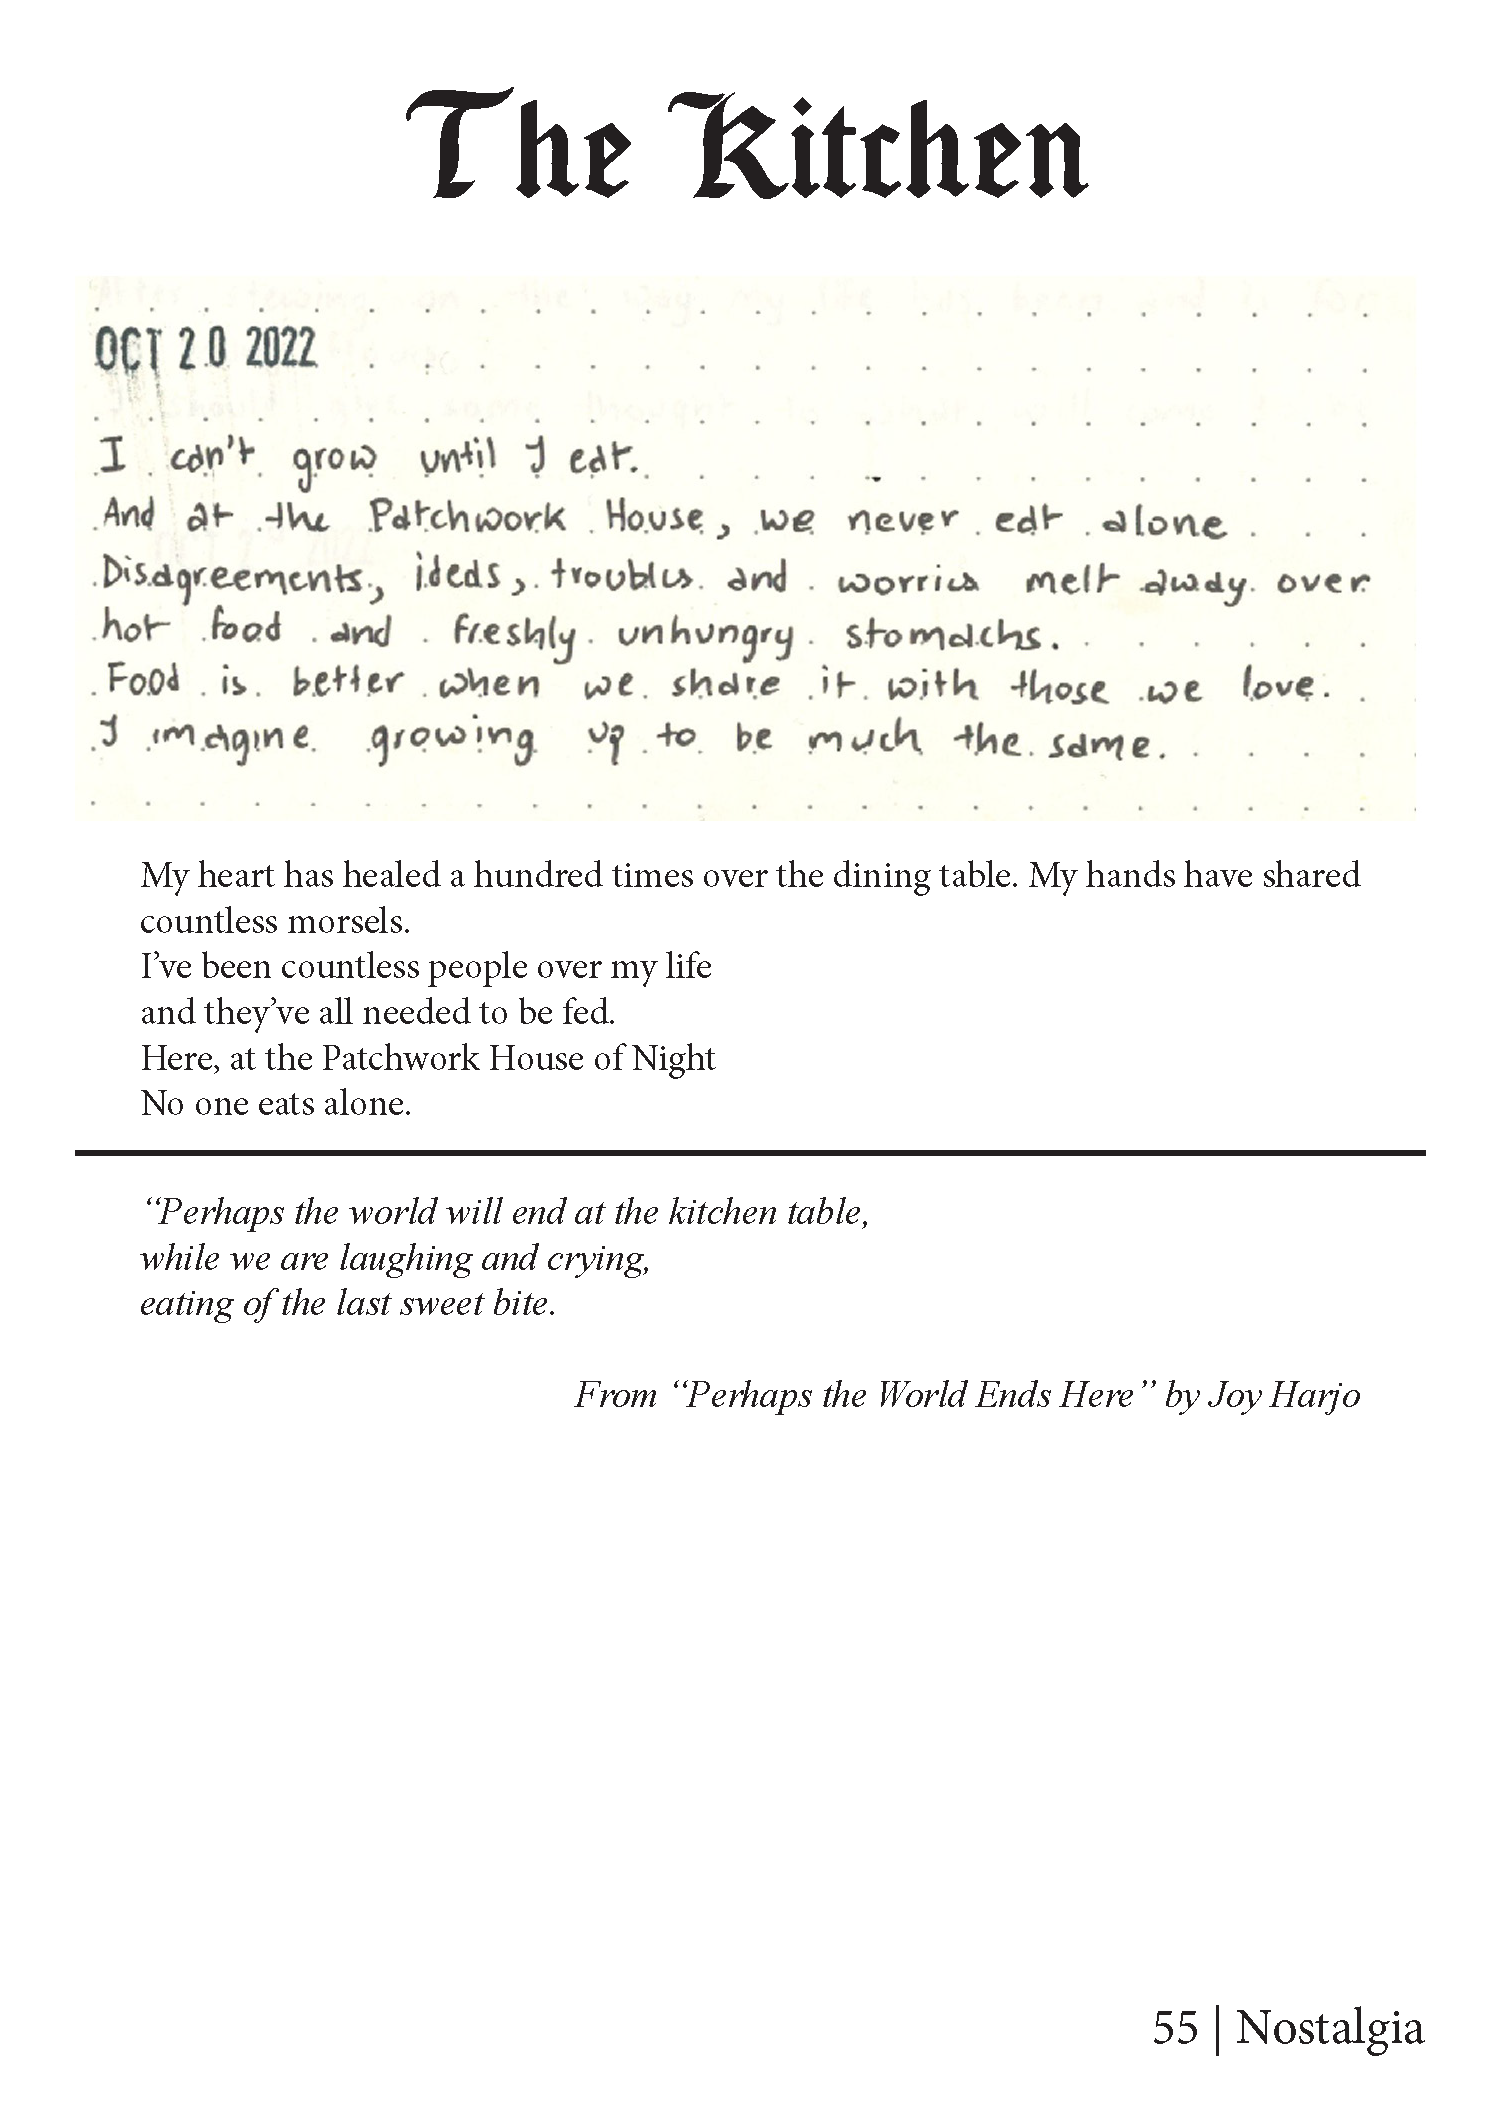 The Kitchen
OCT 20 2022
I can't grow until I eat.
And at the Patchwork House, we never eat alone
Disagreements, ideas, troubles and worries melt away over
hot food and freshly unhungry stomachs.
Food is better when we share it with those we love.
I imagine growing up to be much the same.
My heart has healed a hundred times over the dining table. My hands have shared
countless morsels.
I’ve been countless people over my life
and they’ve all needed to be fed.
Here, at the Patchwork House of Night
No one eats alone.
“Perhaps the world will end at the kitchen table,
while we are laughing and crying,
eating of the last sweet bite.
From “Perhaps the World Ends Here” by Joy Harjo
55 | Nostalgia